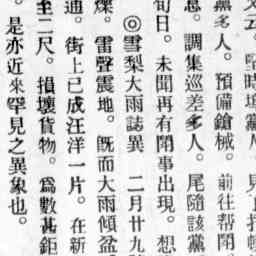 文云。臨時邀黨人。
黨多人。預備鎗械。前往帮鬧
息。調集巡差多人。尾隨該黨
旬日。未聞再有鬧事出現。想
◎雪梨大雨誌異 二月廿九
爍。雷聲震地。既而大雨傾盆
通。街上已成汪洋一片。在新
至二尺。損壞貨物。爲數甚鉅
。是亦近來罕見之異象也。